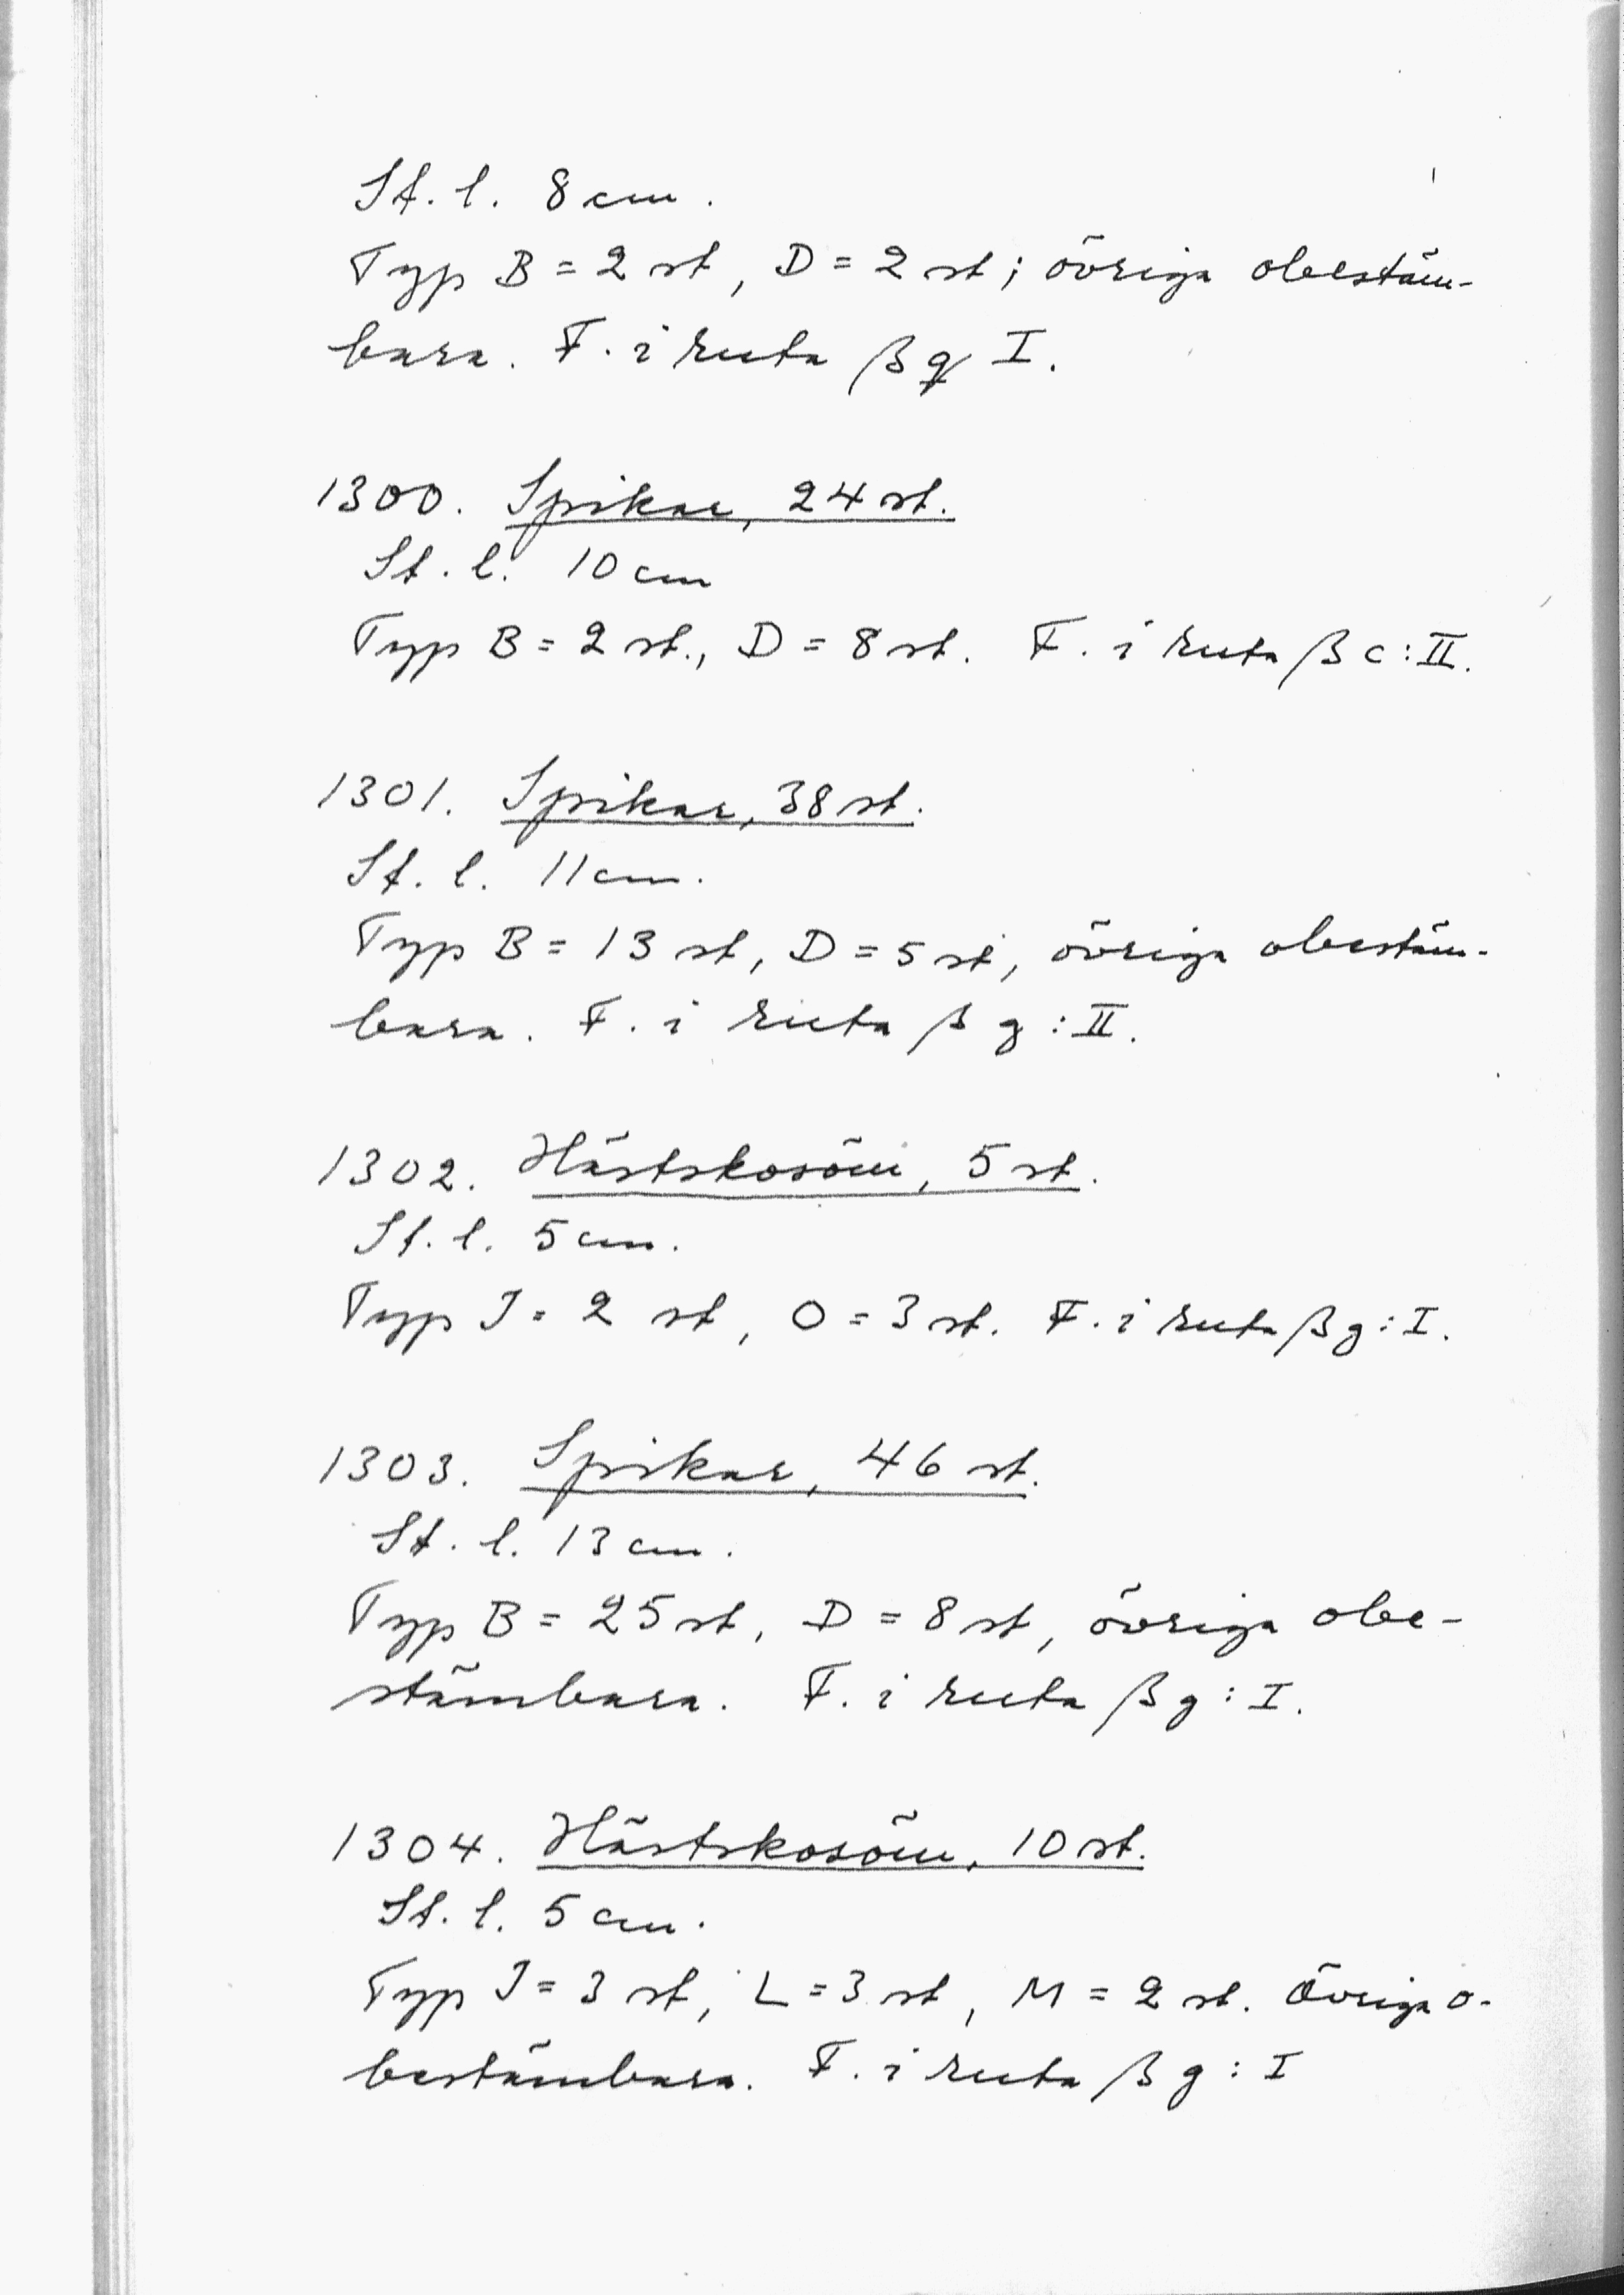 St. l. 8 cm.
Typ B = 2 st, D = 2 st; övriga obestäm-
bara. F. i ruta β g I.
1300. Spikar, 24 st.
St. l. 10 cm
Typ B = 2 st., D = 8 st. F. i ruta β c : II.
1301. Spikar, 38 st.
St. l. 11 cm.
Typ B = 13 st, D = 5 st, övriga obestäm-
bara. F. i ruta β g : II.
1302. Hästskosöm, 5 st.
St. l. 5 cm.
Typ J = 2 st, O = 3 st. F. i ruta β g : I.
1303. Spikar, 46 st.
St. l. 13 cm.
Typ B = 25 st, D = 8 st, övriga obe-
stämbara. F. i ruta β g : I.
1304. Hästskosöm, 10 st.
St. l. 5 cm.
Typ J = 3 st, L = 3 st, M = 2 st. Övriga o-
bestämbara. F. i ruta β g : I